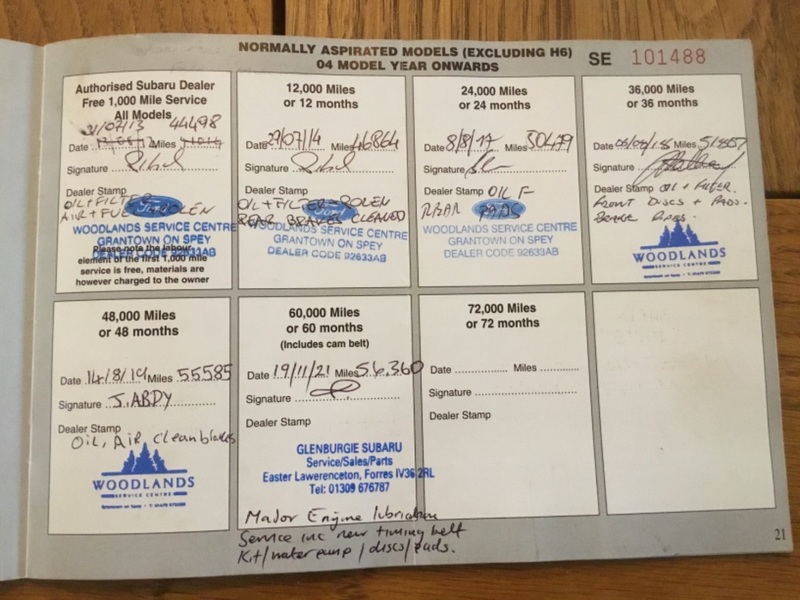 NORMALLY ASPIRATED MODELS (EXCLUDING H6)
04 MODEL YEAR ONWARDS
SE 101488
Authorised Subaru Dealer
Free 1,000 Mile Service
All Models
31/07/13 44498
Date Miles
Signature
Dealer Stamp
OIL + FILTER
AIR + FUEL POLEN
Ford
WOODLANDS SERVICE CENTRE
GRANTOWN ON SPEY
DEALER CODE 92633AB
Please note the labour
element of the first 1,000 mile
service is free, materials are
however charged to the owner
12,000 Miles
or 12 months
Date 29/07/14 Miles 46864
Signature
Dealer Stamp
OIL + FILTER POLEN
Ford
REAR BRAKES CLEANED
WOODLANDS SERVICE CENTRE
GRANTOWN ON SPEY
DEALER CODE 92633AB
24,000 Miles
or 24 months
Date 8/8/17 Miles 50479
Signature
Dealer Stamp OIL F
PADS
WOODLANDS SERVICE CENTRE
GRANTOWN ON SPEY
DEALER CODE 92633AB
36,000 Miles
or 36 months
Date Miles 51857
Signature
Dealer Stamp OIL + FILTER.
FRONT DISCS + PADS.
WOODLANDS
SERVICE CENTRE
48,000 Miles
or 48 months
Date 14/8/19 Miles 55585
Signature J. ABDY
Dealer Stamp
OIL, AIR Clean
WOODLANDS
SERVICE CENTRE
60,000 Miles
or 60 months
(Includes cam belt)
Date 19/11/21 Miles 56,360
Signature
Dealer Stamp
GLENBURGIE SUBARU
Service/Sales/Parts
Easter Lawerenceton, Forres IV36 2RL
Tel: 01309 676787
Major Engine lubrication
Service inc new timing belt
Kit/water pump / discs/pads.
72,000 Miles
or 72 months
Date Miles
Signature
Dealer Stamp
21